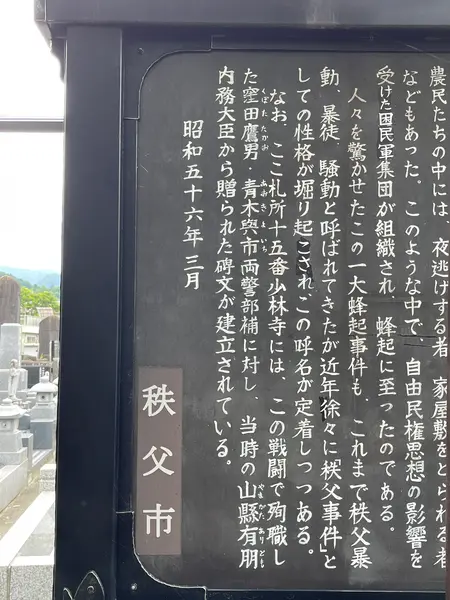 農民たちの中には、夜逃げする者、家屋敷をとられる者
などもあった。このような中で、自由民権思想の影響を
受けた困民軍集団が組織され、蜂起に至ったのである。
人々を驚かせたこの一大蜂起事件も、これまで秩父暴
動、暴徒、騒動と呼ばれてきたが近年徐々に「秩父事件」と
しての性格が掘り起こされ、この呼名が定着しつつある。
なお、ここ札所十五番少林寺には、この戦闘で殉職し
た窪田鷹男・青木與市両警部補に対し、当時の山縣有朋
内務大臣から贈られた碑文が建立されている。
くぼた たかお
あおき よいち
やまがた ありとも
昭和五十六年三月
秩父市